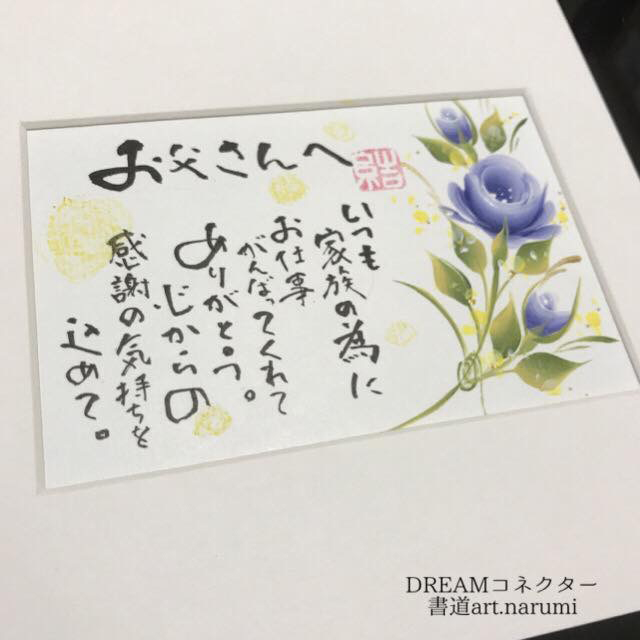 お父さんへ
いつも
家族の為に
お仕事
がんばってくれて
ありがとう。
心からの
感謝の気持ちを
込めて。
DREAMコネクター
書道art.narumi